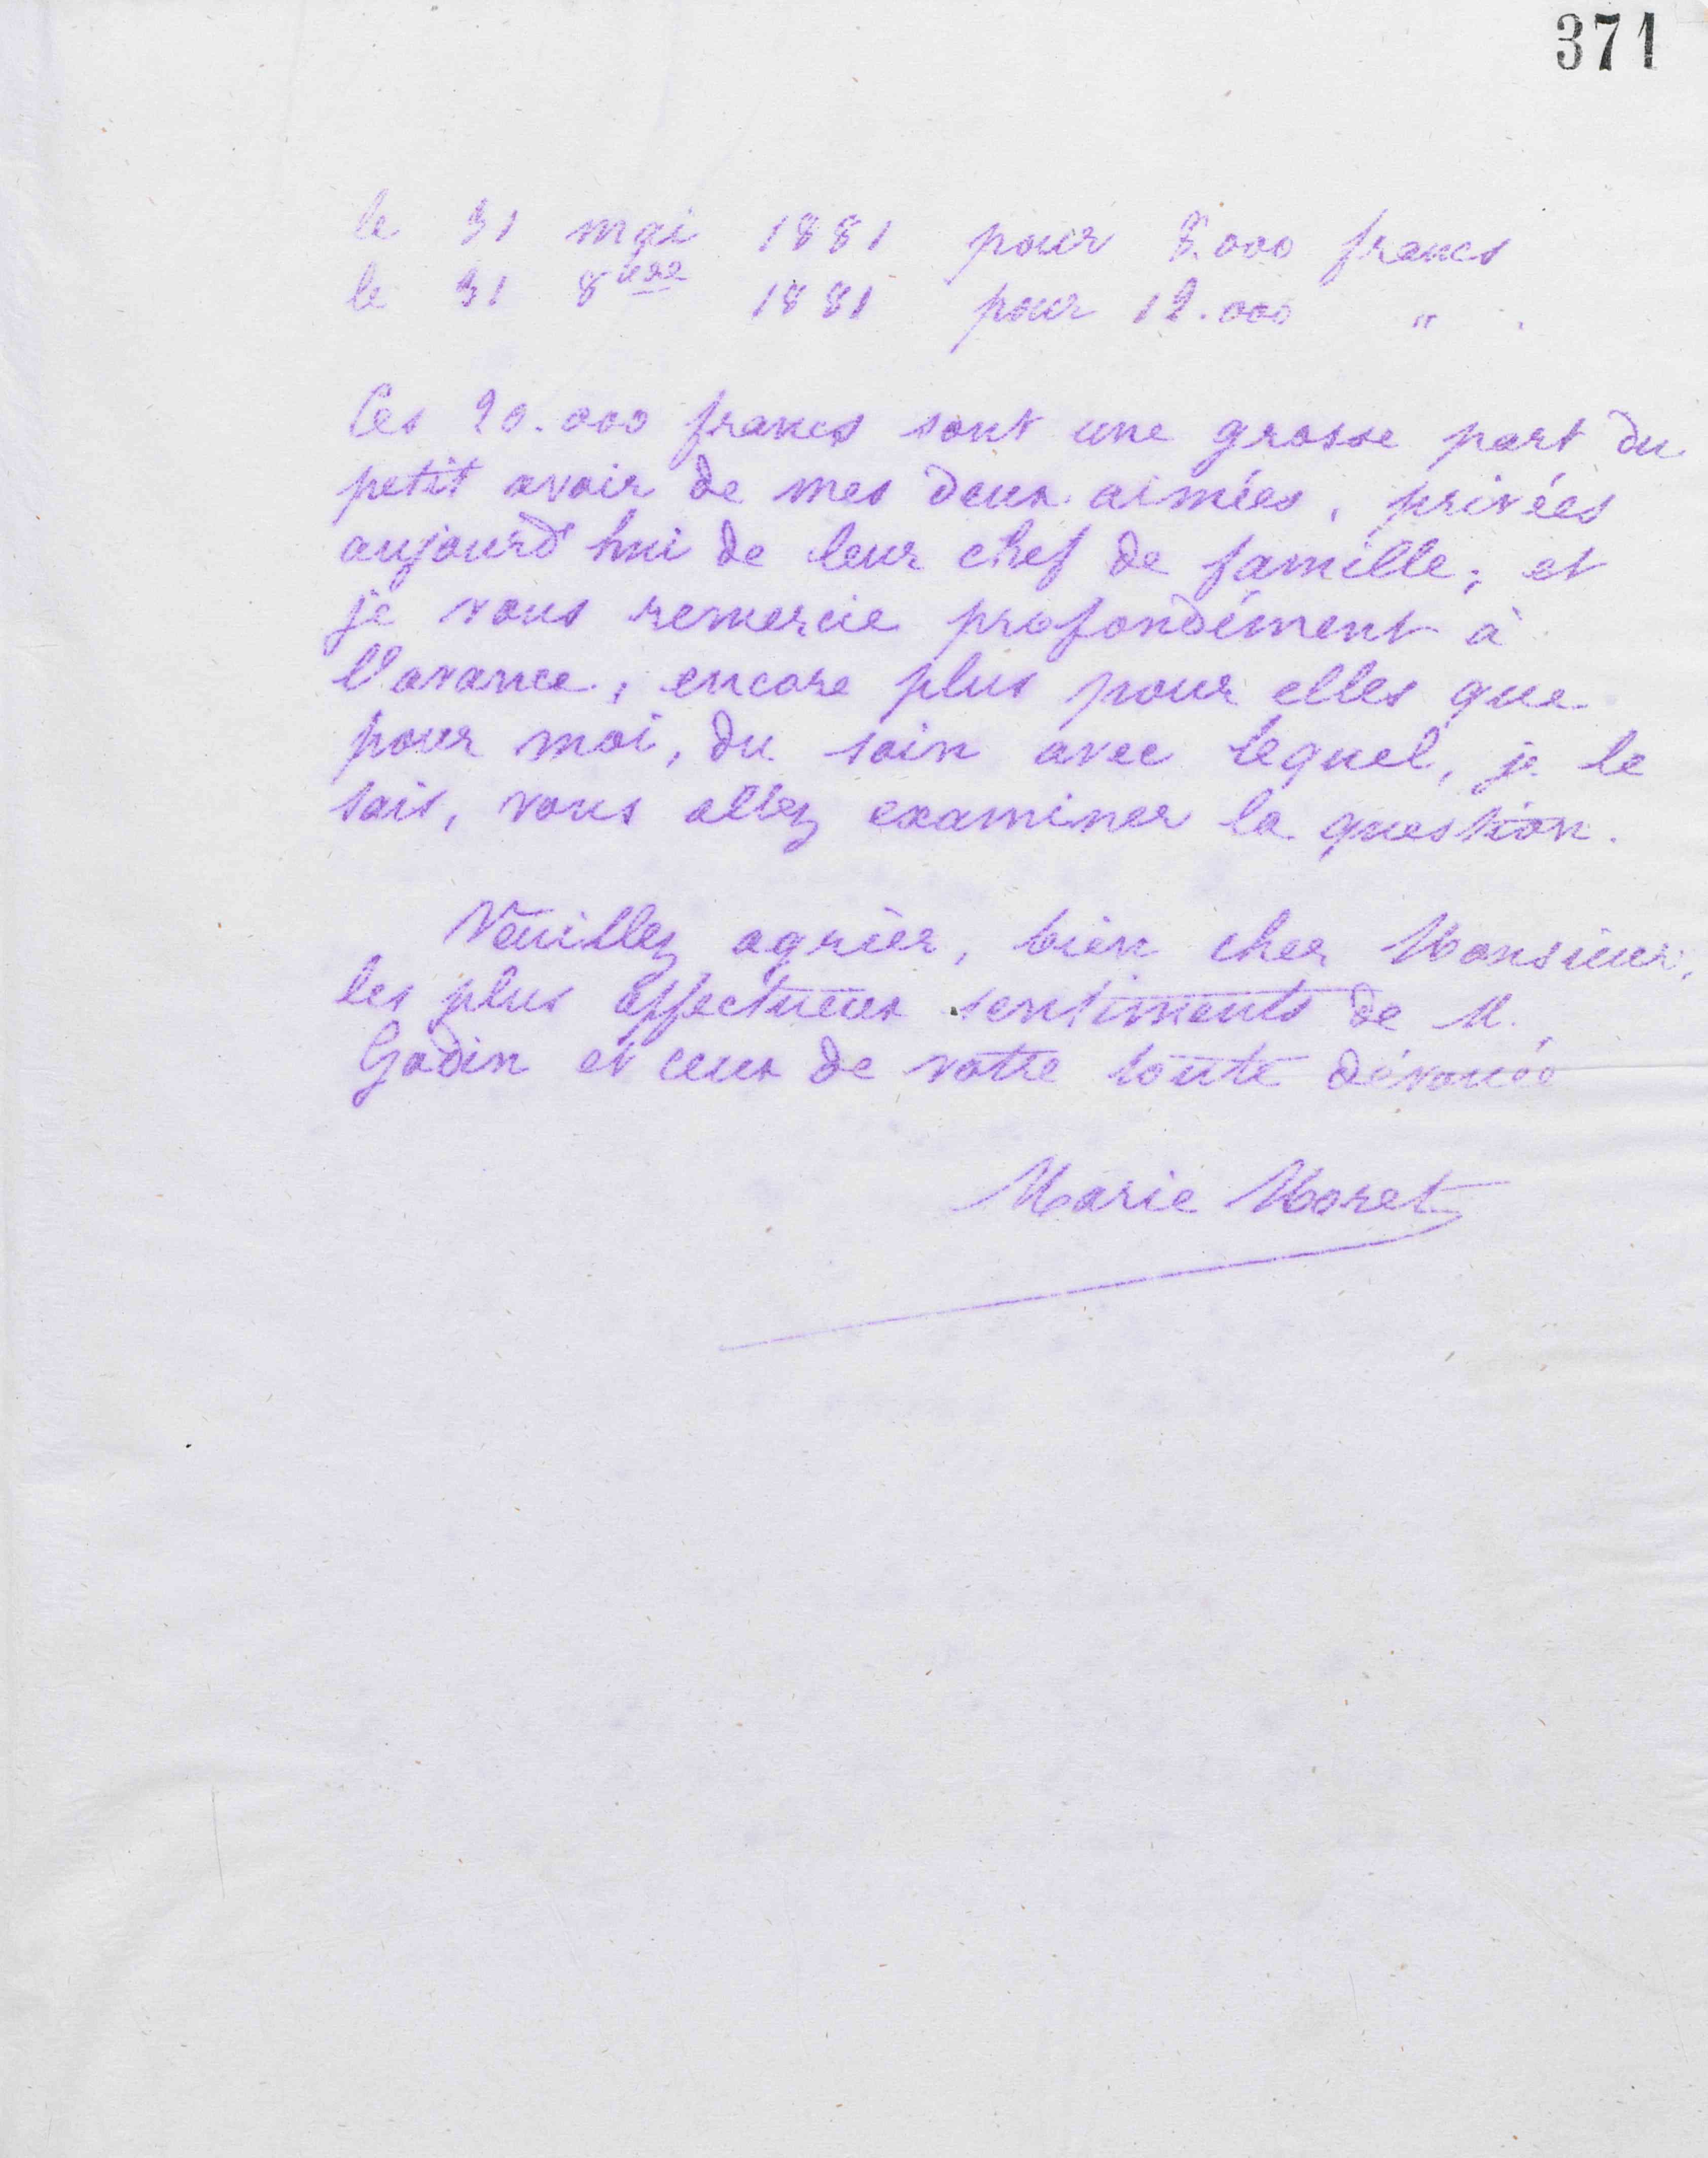 371
le 31 mai 1881 pour 8.000 francs
le 31 8bre 1881 pour 12.000 " .
Ces 20.000 francs sont une grosse part du
petit avoir de mes deux aimées, privées
aujourd'hui de leur chef de famille; et
je vous remercie profondément à
l'avance, encore plus pour elles que
pour moi, du soin avec lequel, je le
sais, vous allez examiner la question.
Veuillez agréer, bien cher Monsieur,
les plus affectueux sentiments de M.
Godin et ceux de votre toute dévouée
Marie Moret